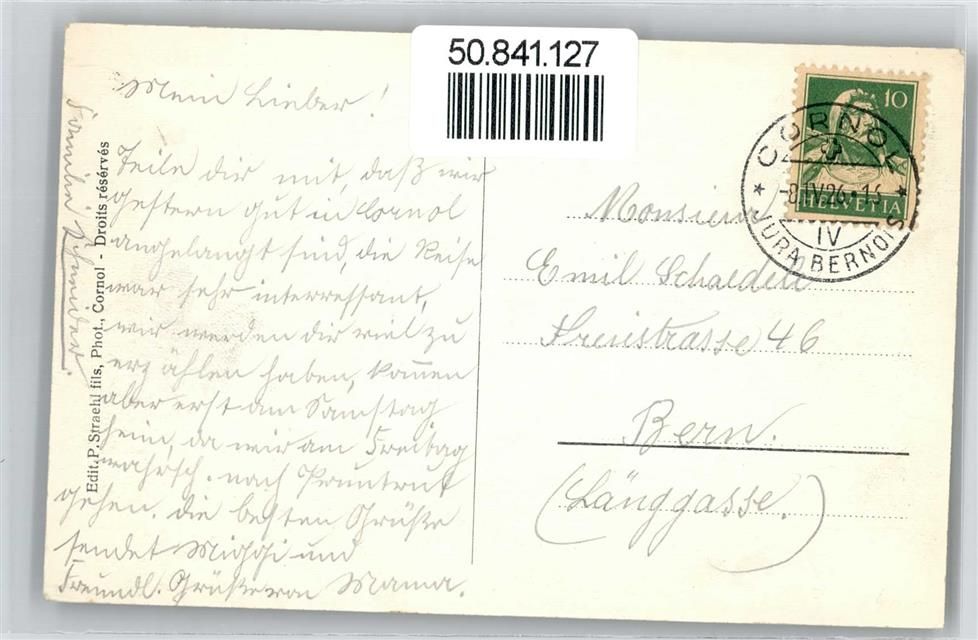 50.841.127
Mein Lieber!
Teile dir mit, daß wir
gestern gut in Cornol
angelangt sind, die Reise
war sehr interressant,
wir werden dir viel zu
erzählen haben, kommen
aber erst am Samstag
heim, da wir am Freitag
wahrsch. nach Pruntrut
gehen. Die besten Grüße
sendet Miggi und
Freundl. Grüße von Mama.
Familie Schneider.
Edit. P. Straehl fils, Phot., Cornol - Droits réservés
10
HELVETIA
CORNOL
-8.IV.26.-
IV
(JURA BERNOIS)
Monsieur
Emil
Freiestrasse 46
Bern.
(Länggasse.)